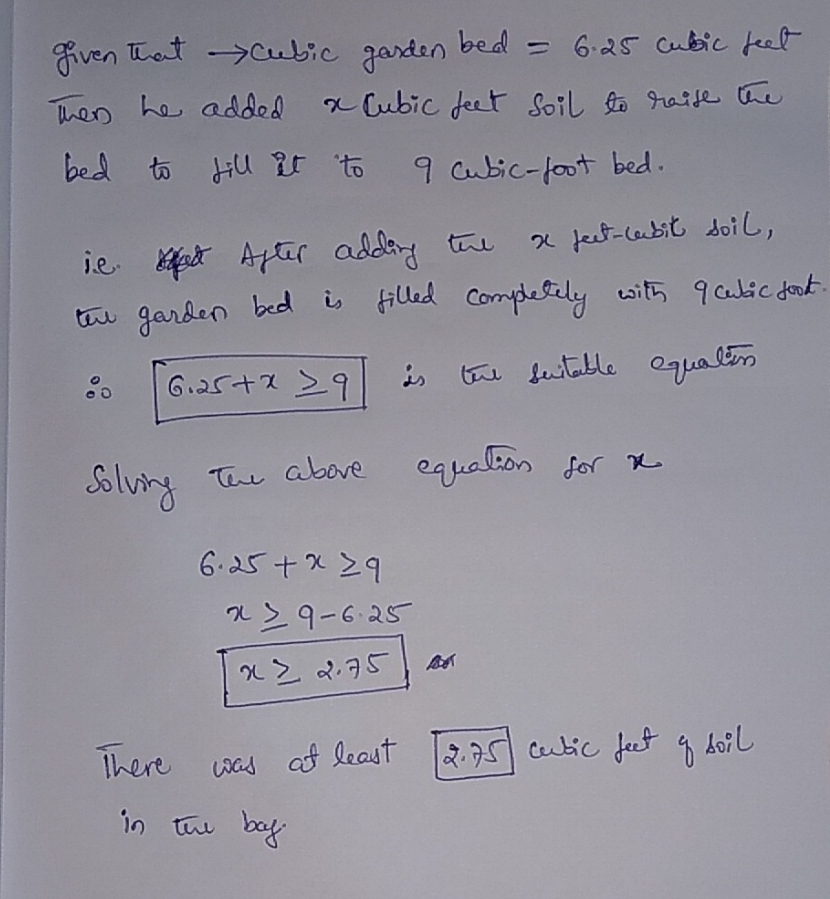 given that → cubic garden bed = 6.25 cubic feet
Then he added x Cubic feet Soil to raise the
bed to fill it to 9 cubic-foot bed.
i.e. After adding the x feet-cubit soil,
the garden bed is filled completely with 9 cubic foot.
∴ 6.25+x ≥ 9 is the suitable equation
Solving the above equation for x
6.25 + x ≥ 9
x ≥ 9-6.25
x ≥ 2.75
There was at least 2.75 cubic feet of soil
in the bag.